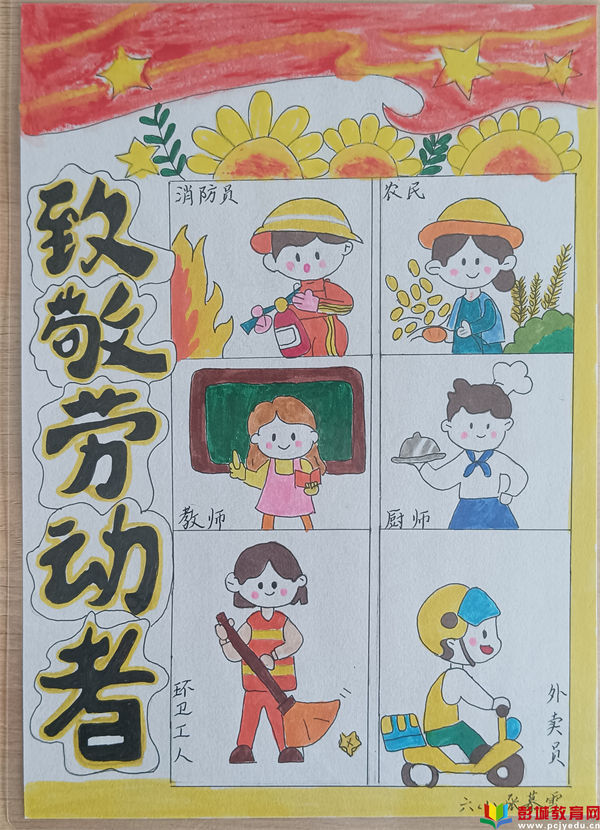 致敬劳动者
消防员
农民
教师
厨师
环卫工人
外卖员
六小 张慕雲
彭城教育网
www.pcjyedu.cn